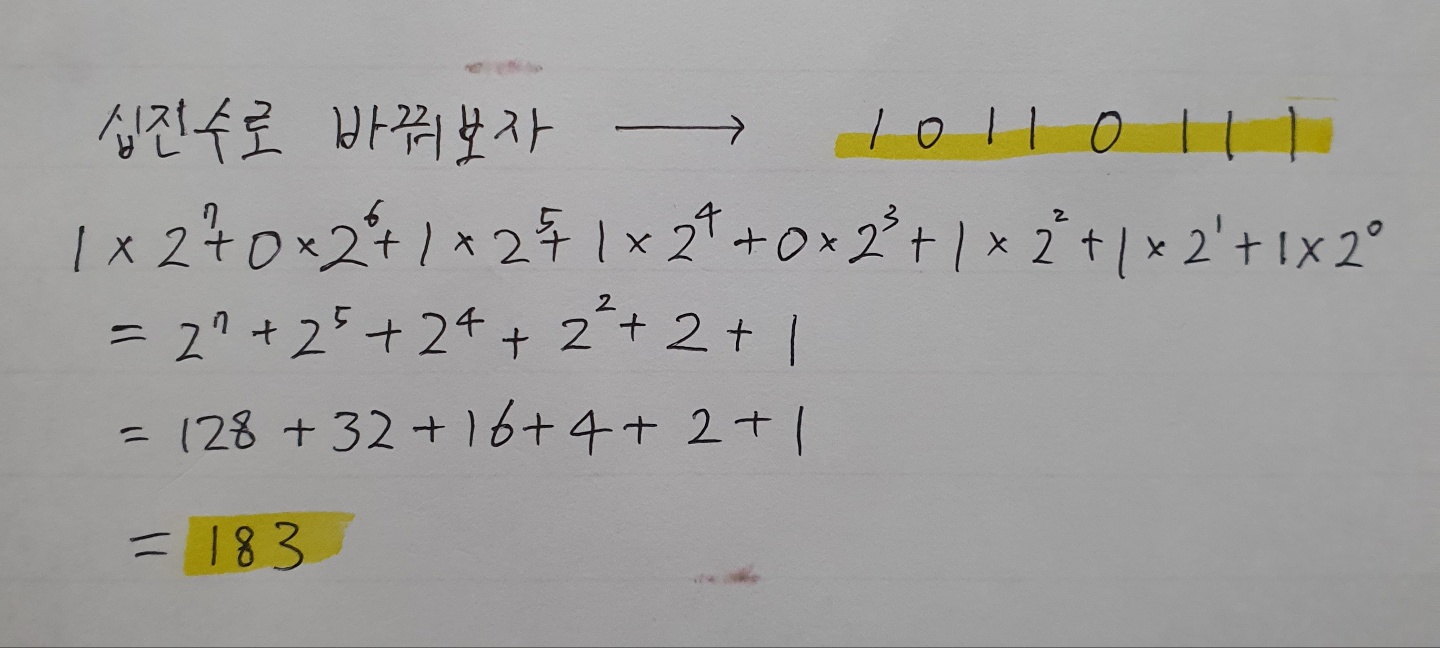 십진수로 바꿔보자 → 1 0 1 1 0 1 1 1
1 × 2⁷ + 0 × 2⁶ + 1 × 2⁵ + 1 × 2⁴ + 0 × 2³ + 1 × 2² + 1 × 2¹ + 1 × 2⁰
= 2⁷ + 2⁵ + 2⁴ + 2² + 2 + 1
= 128 + 32 + 16 + 4 + 2 + 1
= 183